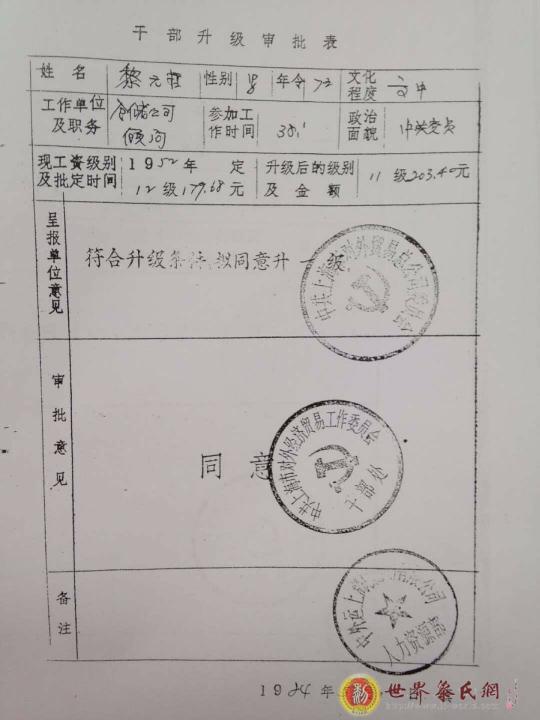 干部升级审批表
姓名 黎元哲 性别 男 年令 72 文化程度 高中
工作单位及职务 仓储公司顾问 参加工作时间 38.1 政治面貌 中共党员
现工资级别及批定时间 1952年 定 12级179.68元 升级后的级别及金额 11级203.40元
呈报单位意见 符合升级条件,拟同意升一级
中共上海市对外贸易总公司委员会
审批意见 同意
中共上海市对外经济贸易工作委员会
干部处
备注
中外运上海 有限公司
人力资源部
1984年
世界黎氏網